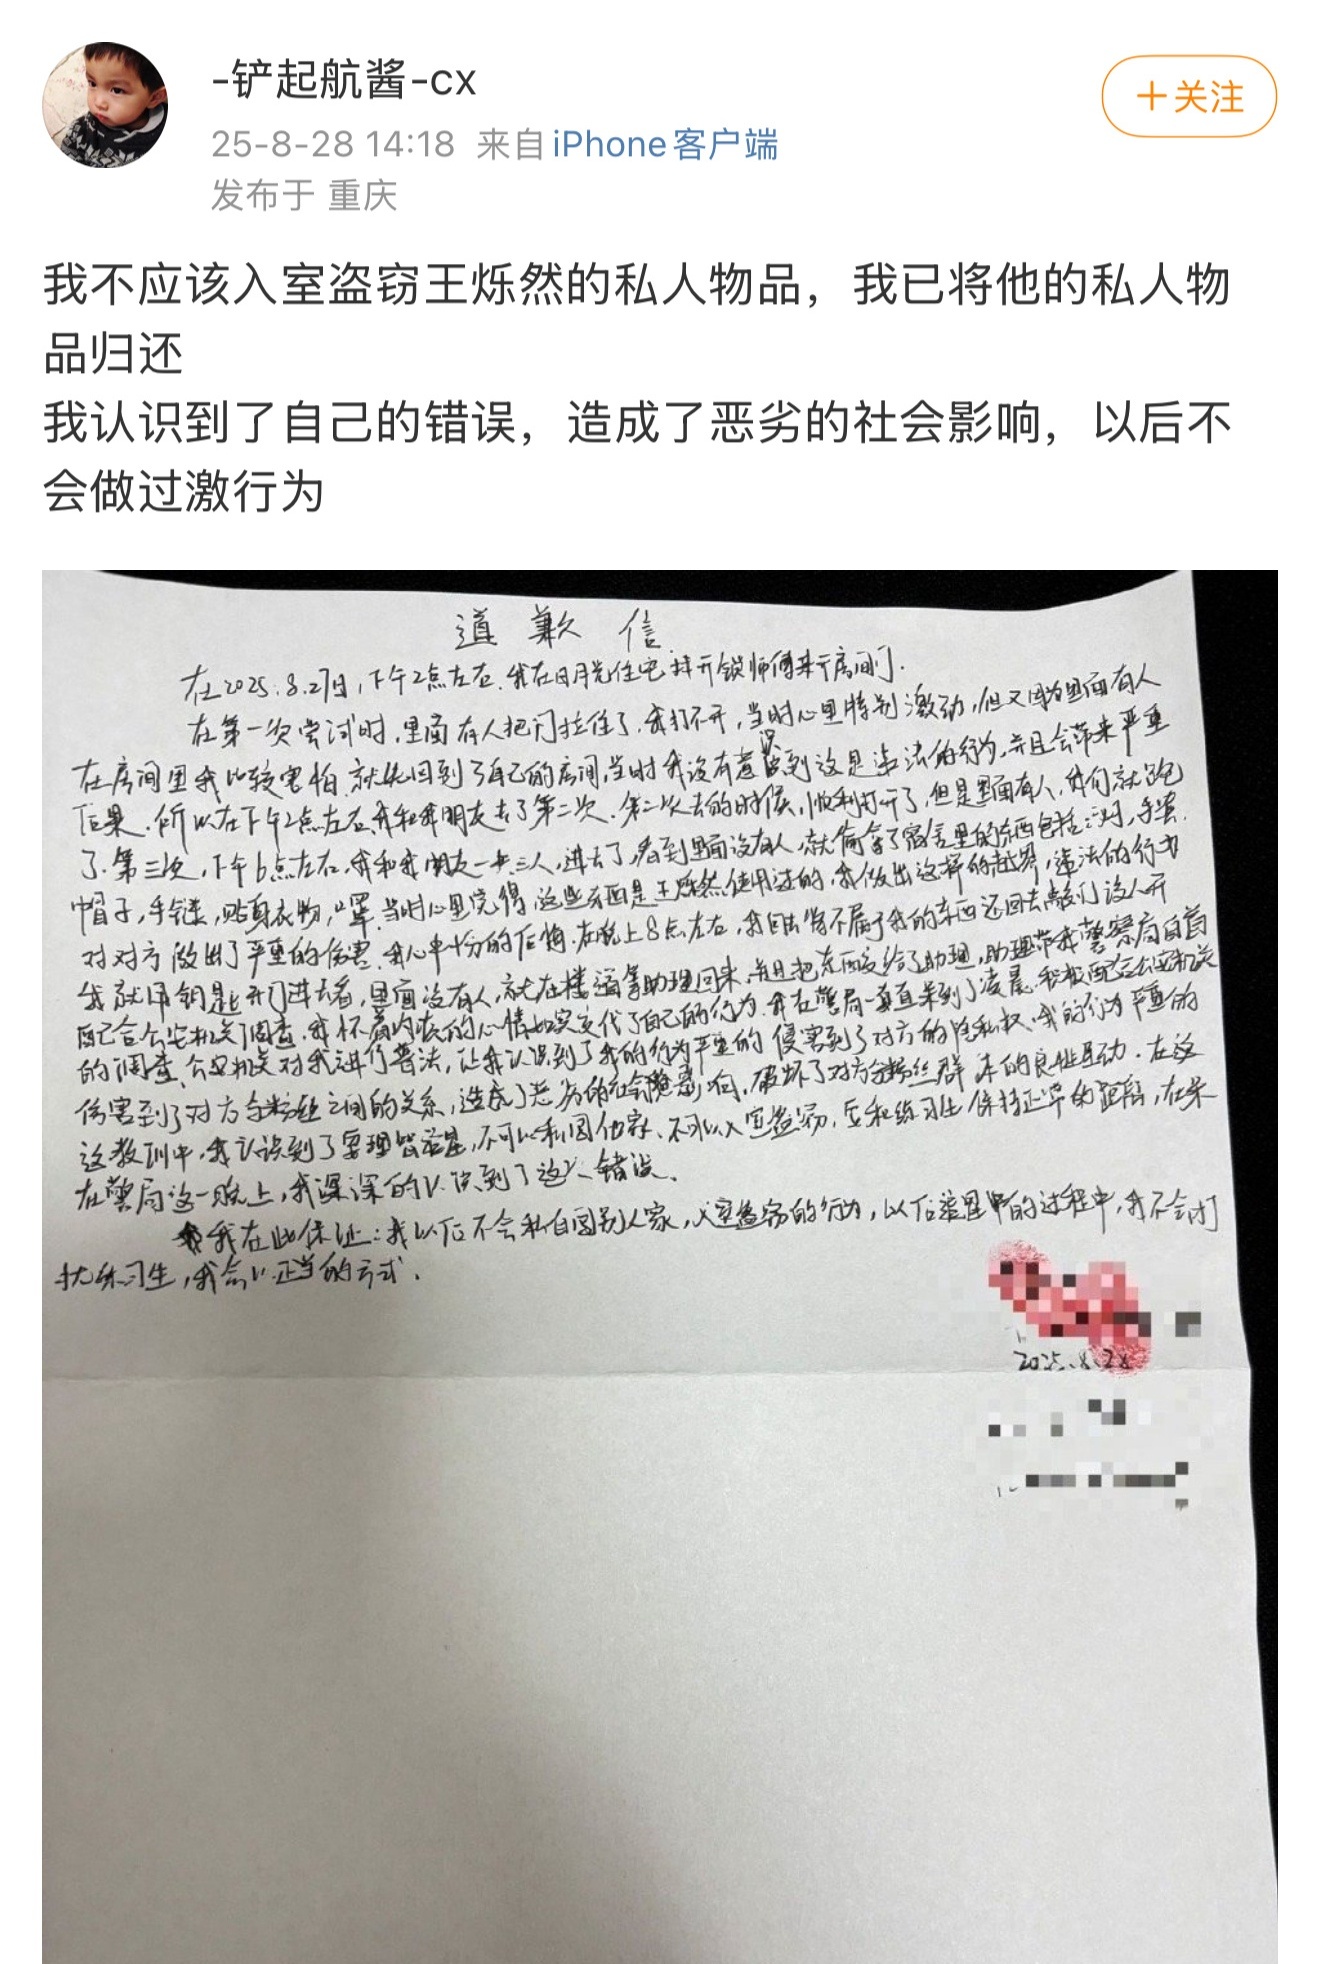 -铲起航酱-cx
+关注
25-8-28 14:18 来自 iPhone客户端
发布于 重庆
我不应该入室盗窃王烁然的私人物品，我已将他的私人物
品归还
我认识到了自己的错误，造成了恶劣的社会影响，以后不
会做过激行为
道歉信
在2025.8.27日，下午2点左右.我在日月光住宅找开锁师傅来开房间门.
在第一次尝试时，里面有人把门拉住了.我打不开，当时心里特别激动，但又因为里面有人
在房间里我比较害怕.就先回到了自己的房间，当时我没有意识到这是违法的行为，并且会带来严重
后果.所以在下午2点左右，我和我朋友去了第二次.第二次去的时候，顺利打开了，但是里面有人，我们就跑
了.第三次，下午6点左右，我和我朋友一共三人，进去了，看到里面没有人，就偷拿了宿舍里的东西包括
帽子，手链，贴身衣物，口罩.当时心里觉得，这些东西是王烁然使用过的，我做出这样的越界，违法的行为
对对方做出了严重的伤害.我心中十分的后悔.在晚上8点左右，我回去将不属于我的东西还回去敲门没人开
我就用钥匙开门进去看，里面没有人，就在楼道等助理回来，并且把东西交给了助理，助理带我警察局自首
配合公安机关调查.我怀着内疚的心情如实交代了自己的行为.我在警局一直呆到了凌晨.积极配合公安机关
的调查，公安机关对我进行普法，让我认识到了我的行为严重的侵害到了对方的隐私权.我的行为严重的
伤害到了对方与粉丝之间的关系，造成了恶劣的社会影响，破坏了对方与粉丝群体的良性互动.在这
这教训中，我认识到了要理智追星，不可以私闯他家、不可以入室盗窃，应和练习生保持正常的距离，在呆
在警局这一晚上，我深深的认识到了这个错误.
我在此保证：我以后不会私自闯别人家，入室盗窃的行为，以后追星的过程中，我不会打
扰练习生，我会以正当的方式.
2025.8.28